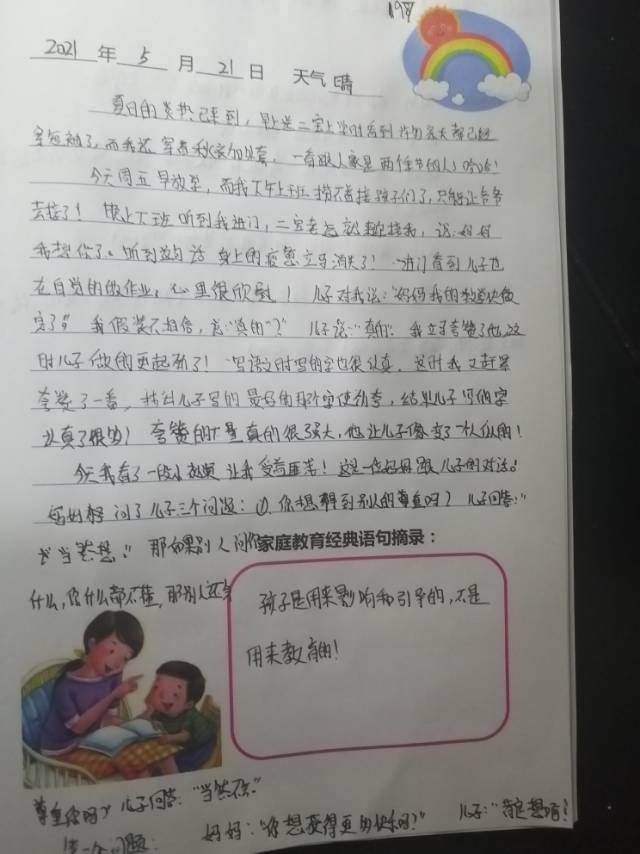 198
2021年5月21日 天气晴
夏日的炎热已来到，早上送二宝上学时看到许多家长都已经
穿短袖了，而我还穿着秋家的外套，一看跟人家是两个季节的人！哈哈！
今天周五早放学，而我下午上班接不着孩子们了，只能让爸爸
去接了！晚上下班听到我进门，二宝
我想你了。听到这句话身上的疲惫立马消失了！一进门看到儿子也
在自觉的做作业，心里很欣慰！儿子对我说："妈妈我的数学快做
完了"。我假装不相信，说："真的？" 儿子说："真的"。我立马夸赞了他，这
时儿子做的更起劲了！写语文时写的字也很认真，这时我又赶紧
夸赞了一番，找出儿子写的最好的那个字使劲夸，结果儿子写的字
认真了很多！夸赞的力量真的很强大，他让儿子像变了一个人似的！
今天我看了一段小视频让我受益匪浅！这是一位妈妈跟儿子的对话。
妈妈问了儿子三个问题：①，你想得到别人的尊重吗？儿子回答："
当然想。" 那如果别人问你
家庭教育经典语句摘录：
什么，你什么都不懂，那别人还会
孩子是用来影响和引导的，不是
用来教育的！
尊重你吗？儿子回答："当然不。"
第二个问题： 妈妈："你想获得更多的快乐吗？" 儿子："肯定想啊！